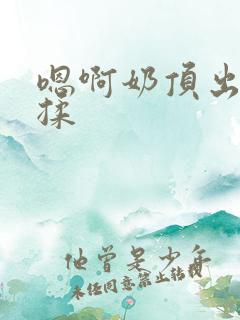 嗯啊奶頂出
揉
他曾是少年
未经同意禁止转载